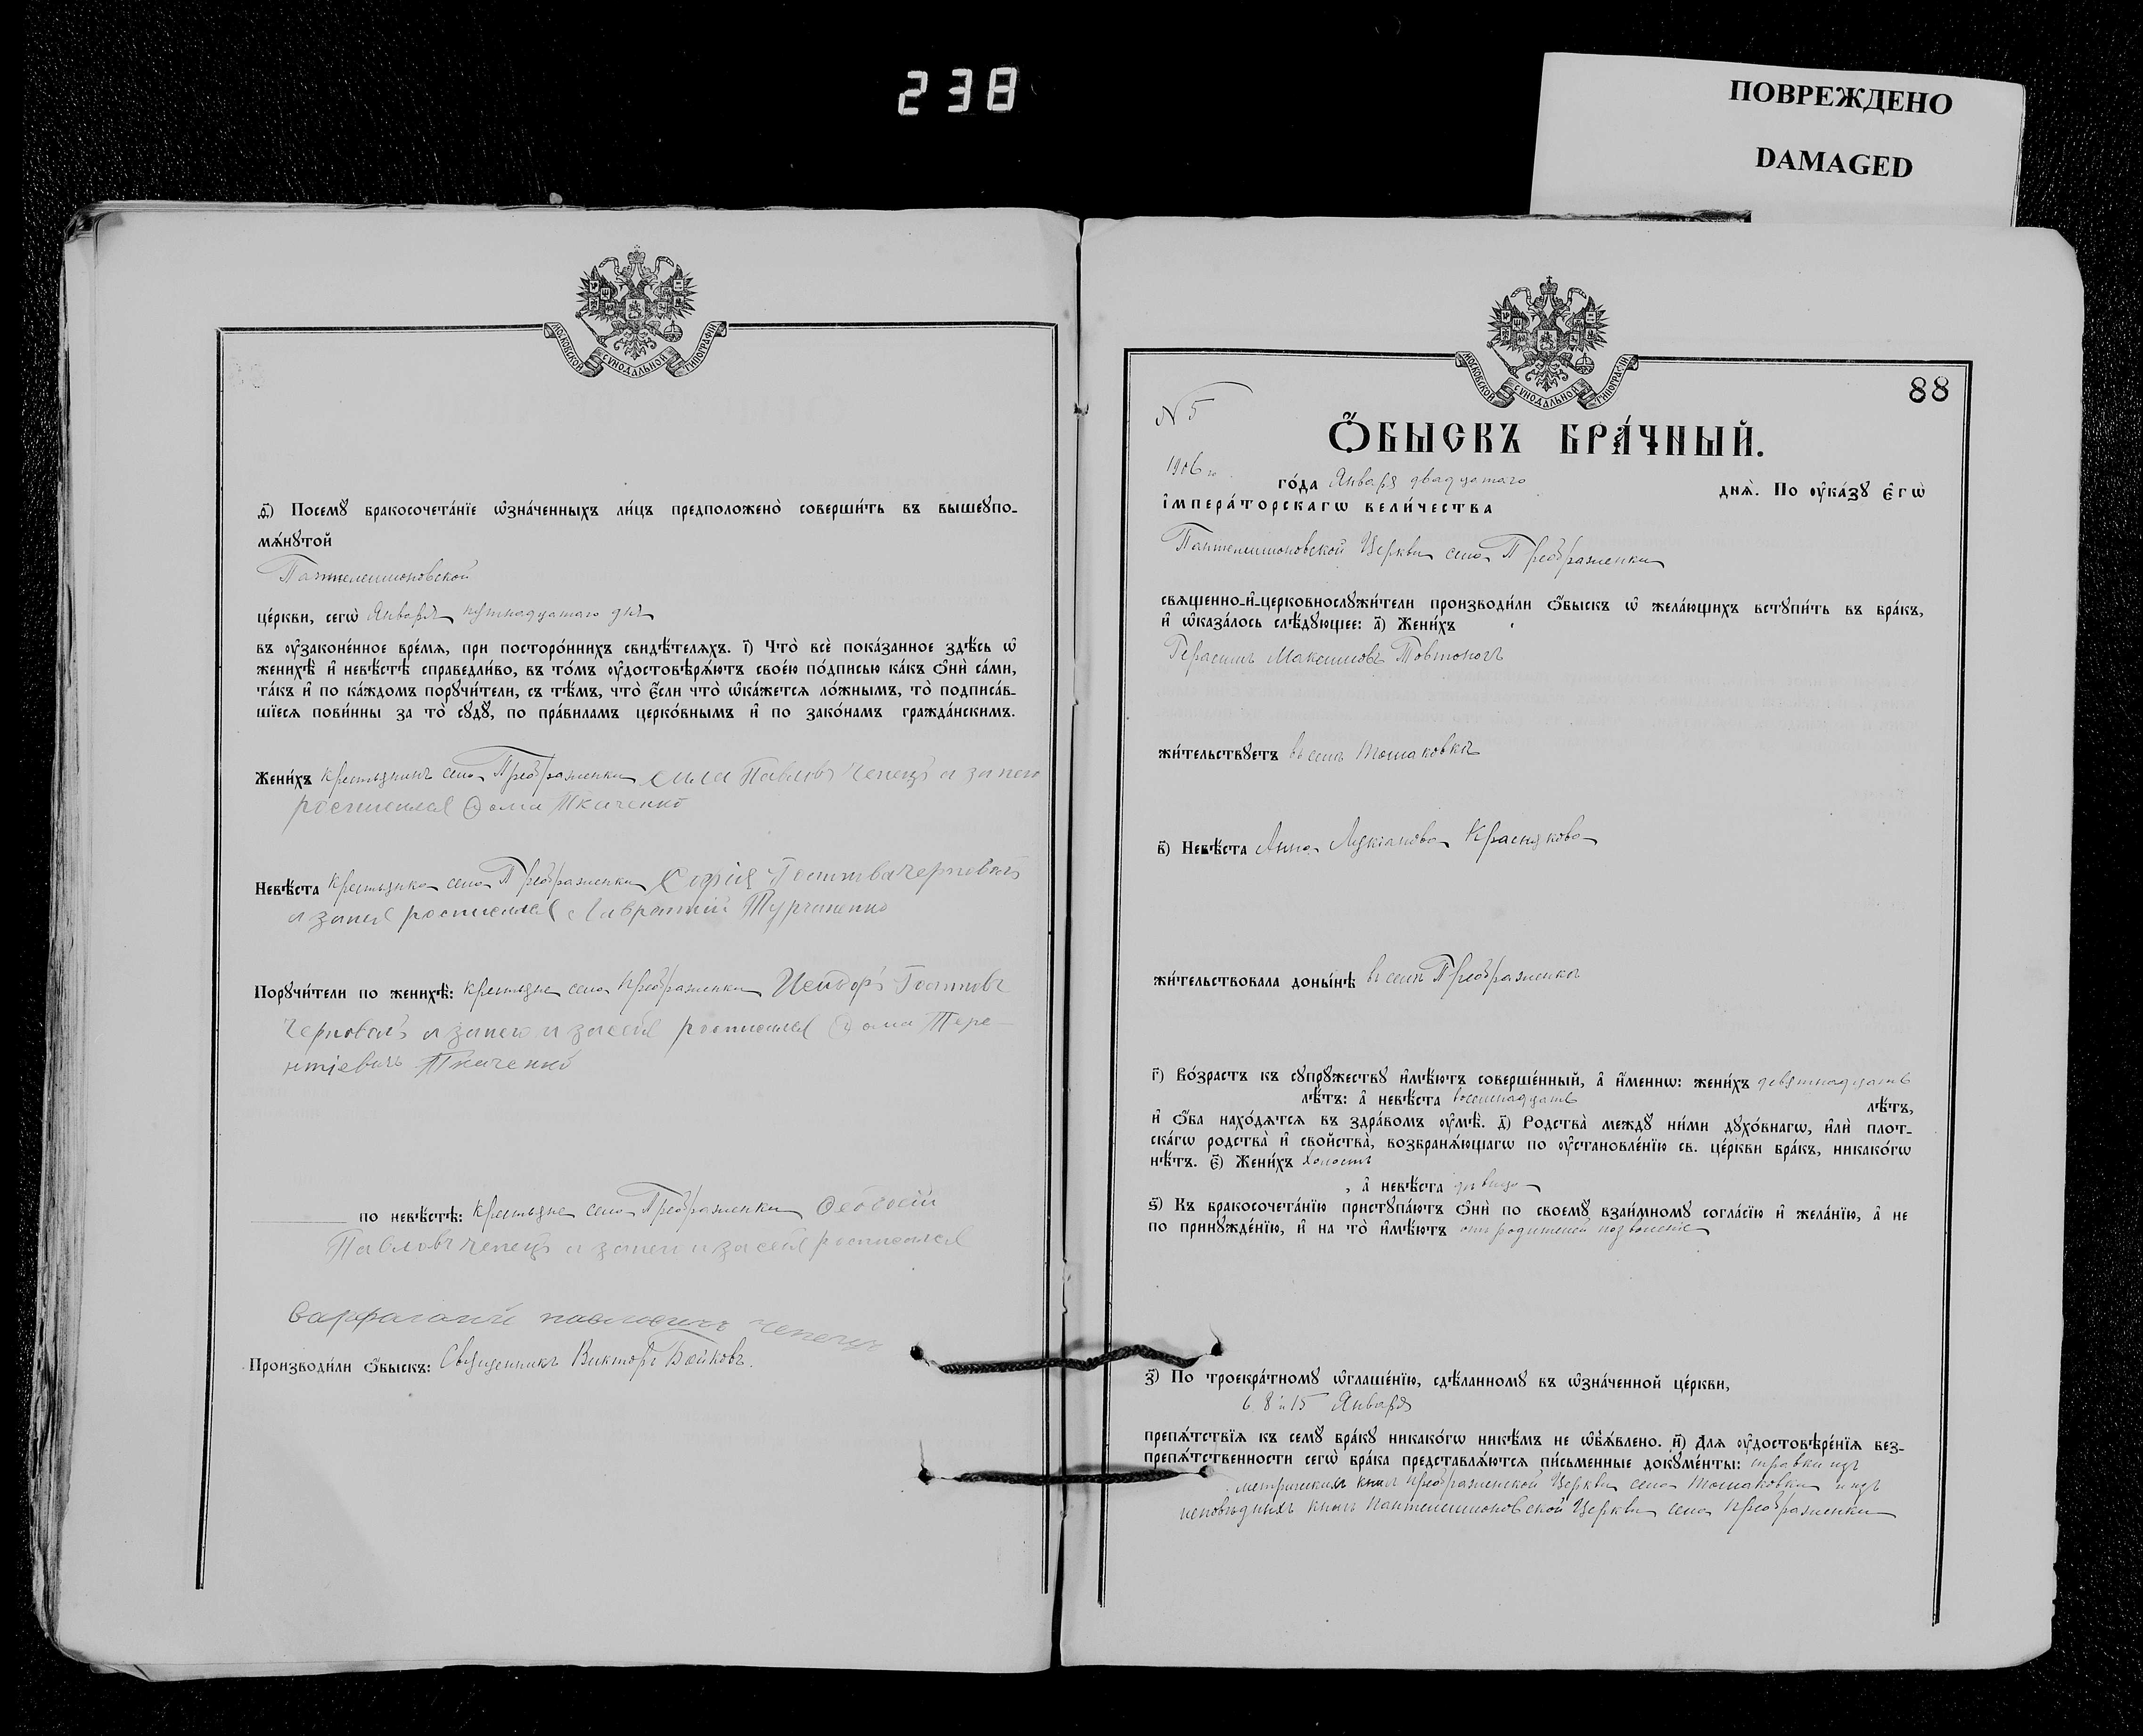 238
ПОВРЕЖДЕНО
DAMAGED
МОСКОВСКОЙ СУНОДАЛЬНОЙ ТИПОГРАФІИ
ѳ҃) Посемꙋ бракосочета́нїе ѡ҆зна́ченныхъ ли́цъ предположено̀ соверши́ть въ вышеꙋпо-
мѧ́нꙋтой
Пантелеимоновской
це́ркви, сегѡ̀ Января пятнадцатаго дня
въ ᲂу҆зако́ненное вре́мѧ, при посторо́ннихъ свидѣ́телѧхъ. і҃) Что̀ всѐ пока́занное здѣ́сь ѡ҆
женихѣ̀ и҆ невѣ́стѣ справедли́во, въ то́мъ ᲂу҆достовѣрѧ́ютъ свое́ю по́дписью ка́къ ѻ҆нѝ са́ми,
та́къ и҆ по ка́ждомъ порꙋчи́тели, съ тѣ́мъ, что̀ є҆́сли что̀ ѡ҆ка́жетсѧ ло́жнымъ, то̀ подписа́в-
шїесѧ пови́нны за то̀ сꙋдꙋ̀, по пра́виламъ церко́внымъ и҆ по зако́намъ гражда́нскимъ.
Жени́хъ крестьянинъ села Преображенки Сила Павловъ Чепецъ а за него
росписался Фома Ткаченко
Невѣ́ста крестьянка села Преображенки София
а за нея росписался Лаврентий Турчиненко
Порꙋчи́тели по женихѣ̀: крестьяне села Преображенки Исидоръ
а за него и за себя росписался Фома Тере-
нтіевичъ Ткаченко
по невѣ́стѣ: крестьяне села Преображенки
Павловъ Чепецъ а за него и за себя росписался
Варфаламей Чепецъ
Производи́ли ѻ҆́быскъ: Священникъ Викторъ Бойковъ.
МОСКОВСКОЙ СУНОДАЛЬНОЙ ТИПОГРАФІИ
88
N 5
Ѻ҆́БЫСКЪ БРА́ЧНЫЙ.
1906 го го́да Января двадцатаго днѧ̀. По ᲂу҆ка́зꙋ є҆гѡ̀
і҆мпера́торскагѡ вели́чества
Пантелеимоновской Церкви села Преображенки
свѧщенно-и҆-церковнослꙋжи́тели производи́ли ѻ҆́быскъ ѡ҆ жела́ющихъ встꙋпи́ть въ бра́къ,
и҆ ѡ҆каза́лось слѣ́дꙋющее: а҃) Жени́хъ
Герасимъ Максимовъ Товтоногъ
жи́тельствꙋетъ въ селѣ Томаковкѣ
в҃) Невѣ́ста Анна Лукіанова Краснякова
жи́тельствовала доны́нѣ въ селѣ Преображенкѣ
г҃) Во́зрастъ къ сꙋпрꙋ́жествꙋ и҆мѣ́ютъ соверше́нный, а҆ и҆́меннѡ: жени́хъ девятнадцать
лѣ́тъ: а҆ невѣ́ста восемнадцать лѣ́тъ,
и҆ ѻ҆́ба нахо́дѧтсѧ въ здра́вомъ ᲂу҆мѣ̀. д҃) Родства̀ междꙋ̀ ни́ми дꙋхо́внагѡ, и҆лѝ плот-
ска́гѡ родства̀ и҆ свойства̀, возбранѧ́ющагѡ по ᲂу҆становле́нїю св. це́ркви бра́къ, никако́гѡ
нѣ́тъ. є҃) Жени́хъ холостъ
, а҆ невѣ́ста дѣвица
ѕ҃) Къ бракосочета́нїю пристꙋпа́ютъ ѻ҆нѝ по своемꙋ̀ взаи́мномꙋ согла́сїю и҆ жела́нїю, а҆ не
по принꙋжде́нїю, и҆ на то̀ и҆мѣ́ютъ отъ родителей позволеніе
з҃) По троекра́тномꙋ ѡ҆глаше́нїю, сдѣ́ланномꙋ въ ѡ҆зна́ченной це́ркви,
6. 8 и 15 Января
препѧ́тствїѧ къ семꙋ̀ бра́кꙋ никако́гѡ никѣ́мъ не ѡ҆б̾ѧ́влено. и҃) Длѧ ᲂу҆достовѣре́нїѧ без-
препѧ́тственности сегѡ̀ бра́ка представлѧ́ютсѧ пи́сьменные докꙋме́нты: справки изъ
метрическихъ книгъ Преображенской Церкви села Томаковки и изъ
исповѣдныхъ книгъ Пантелеимоновской Церкви села Преображенки